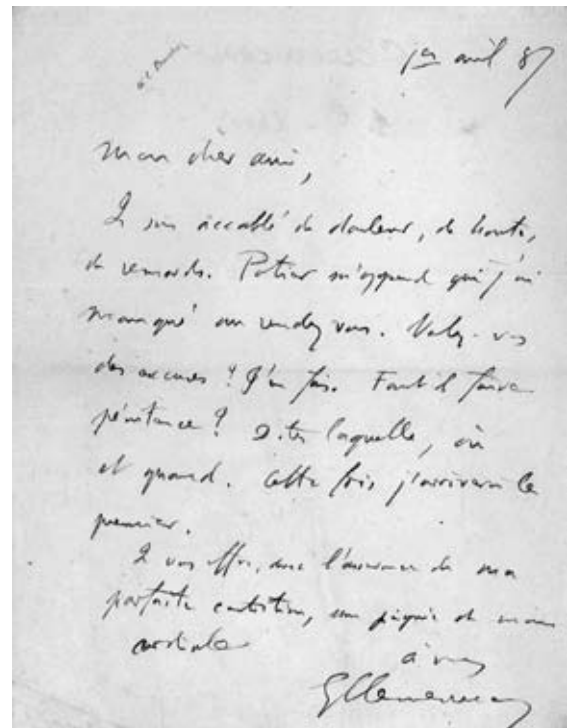 1er avril 87
Mon cher ami,
Je suis accablé de douleur, de honte,
de remords. Potier m'apprend que j'ai
manqué un rendez vous. Voulez-vous
des excuses ? J'en fais. Faut-il faire
pénitance ? Dites laquelle, où
et quand. Cette fois j'arriverai le
premier.
Je vous offre, avec l'assurance de ma
parfaite contrition, une poignée de main
cordiale
à vous
GClemenceau